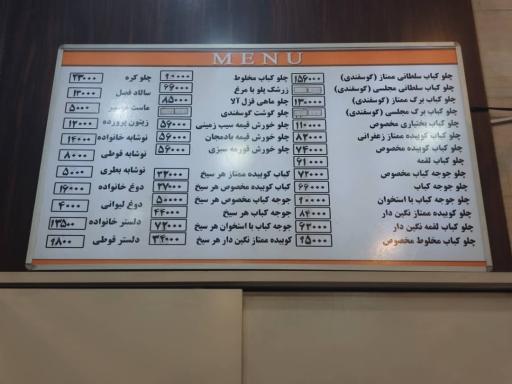 MENU
چلو کباب سلطانی ممتاز (گوسفندی) ۱۵۶۰۰۰
چلو کباب سلطانی مجلسی (گوسفندی)
چلو کباب برگ ممتاز (گوسفندی) ۱۳۰۰۰۰
چلو کباب برگ مجلسی (گوسفندی)
چلو کباب بختیاری مخصوص ۱۱۰۰۰۰
چلو کباب کوبیده ممتاز زعفرانی ۸۲۰۰۰
چلو کباب کوبیده مخصوص ۷۴۰۰۰
چلو کباب لقمه ۶۱۰۰۰
چلو جوجه کباب مخصوص ۷۲۰۰۰
چلو جوجه کباب ۶۶۰۰۰
چلو جوجه کباب با استخوان ۹۰۰۰۰
چلو کوبیده ممتاز نگین دار ۸۴۰۰۰
چلو کباب لقمه نگین دار ۶۲۰۰۰
چلو کباب مخلوط مخصوص ۹۵۰۰۰
چلو کباب مخلوط ۹۰۰۰۰
زرشک پلو با مرغ ۶۶۰۰۰
چلو ماهی قزل آلا ۸۵۰۰۰
چلو گوشت گوسفندی
چلو خورش قیمه سیب زمینی ۵۶۰۰۰
چلو خورش قیمه بادمجان ۵۶۰۰۰
چلو خورش قورمه سبزی ۵۶۰۰۰
کباب کوبیده ممتاز هر سیخ ۳۲۰۰۰
کباب کوبیده مخصوص هر سیخ ۲۷۰۰۰
جوجه کباب مخصوص هر سیخ ۵۰۰۰۰
جوجه کباب هر سیخ ۴۴۰۰۰
جوجه کباب با استخوان هر سیخ ۷۲۰۰۰
کوبیده ممتاز نگین دار هر سیخ ۳۴۰۰۰
چلو کره ۲۳۰۰۰
سالاد فصل ۱۲۰۰۰
ماست ۵۰۰۰
زیتون پرورده ۱۲۰۰۰
نوشابه خانواده ۱۴۰۰۰
نوشابه قوطی ۸۰۰۰
نوشابه بطری ۵۰۰۰
دوغ خانواده ۱۶۰۰۰
دوغ لیوانی ۴۰۰۰
دلستر خانواده ۱۳۵۰۰
دلستر قوطی ۹۸۰۰